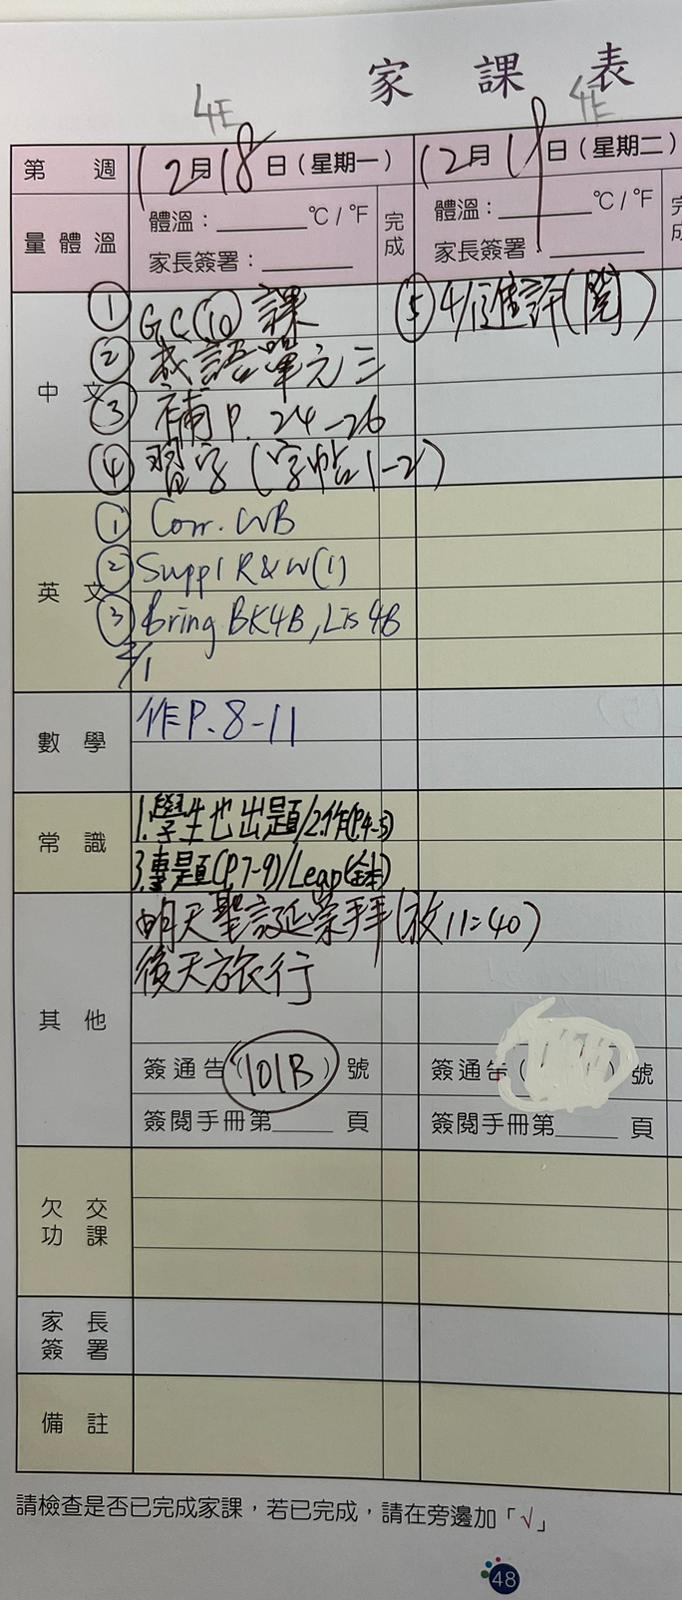 家課表
4E 4E
第 週 12月18日(星期一) 12月19日(星期二)
量體溫 體溫：______℃/℉ 完成 體溫：______℃/℉
家長簽署：______ 家長簽署：______
中文 ① GC⑩課 ⑤ 4/1進評(閱)
② 成語單元三
③ 補P.24-26
④ 習字(字帖1-2)
英文 ① Corr. WB
② Suppl R&W(1)
③ Bring BK4B, Lis 4B
4/1
數學 作P.8-11
常識 1.學生也出題/2.作(P.4-5)
3.專題(P7-9)/Leap(全本)
其他 明天聖誕崇拜(放11:40)
後天旅行
簽通告(101B)號 簽通告( )號
簽閱手冊第____頁 簽閱手冊第____頁
欠交功課
家長簽署
備註
請檢查是否已完成家課，若已完成，請在旁邊加「√」
48